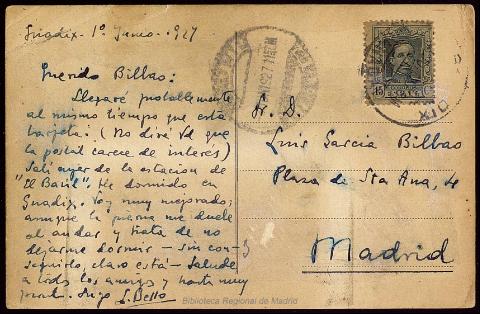 Guadix - 1º Junio - 1927
Querido Bilbao:
Llegaré probablemente
al mismo tiempo que esta
tarjeta. (No dirá Vd que
la postal carece de interés)
Salí ayer de la estación de
"El Baúl". He dormido en
Guadix. Voy muy mejorado;
aunque la pierna me duele
al andar y trata de no
dejarme dormir - sin con-
seguirlo, claro está - Salude
a todos los amigos y hasta muy
pronto. Suyo L. Bello
Sr. D.
Luis Garcia Bilbao
Plaza de Sta Ana, 4
Madrid
15 Cs
Biblioteca Regional de Madrid